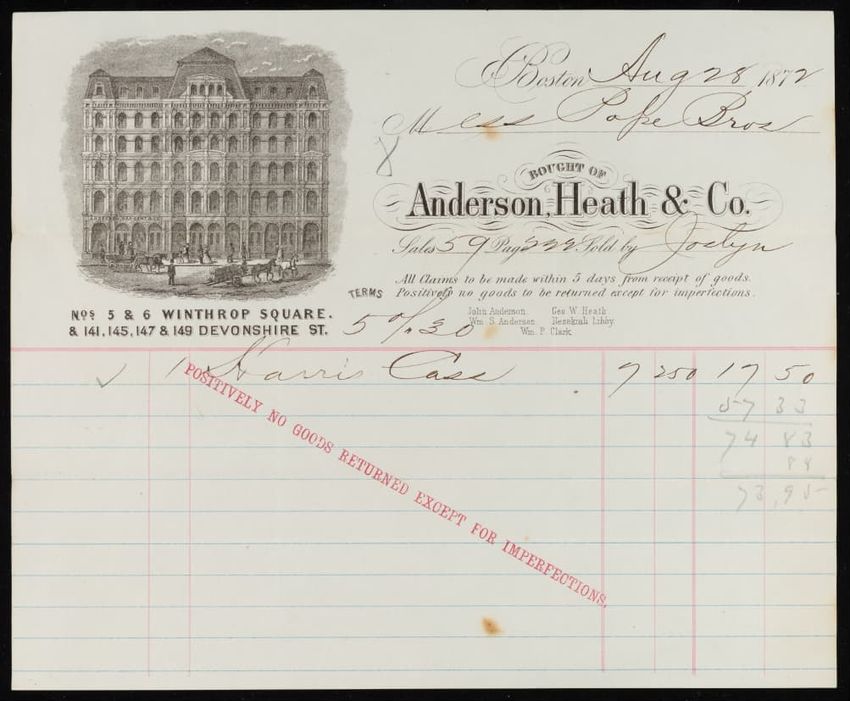 Boston Aug 28 1872
Mess Pope Bros
BOUGHT OF
Anderson, Heath & Co.
Sales 59 Page 222 Sold by Joslyn
All Claims to be made within 5 days from receipt of goods.
Positively no goods to be returned except for imperfections.
TERMS 5 % 30
John Anderson. Geo W. Heath
Wm S. Anderson Hezekiah Libby.
Wm. P. Clark.
Nos 5 & 6 WINTHROP SQUARE.
& 141, 145, 147 & 149 DEVONSHIRE ST.
1 Harris Cass 7 250 17 50
57 33
74 83
88
73,95
POSITIVELY NO GOODS RETURNED EXCEPT FOR IMPERFECTIONS.